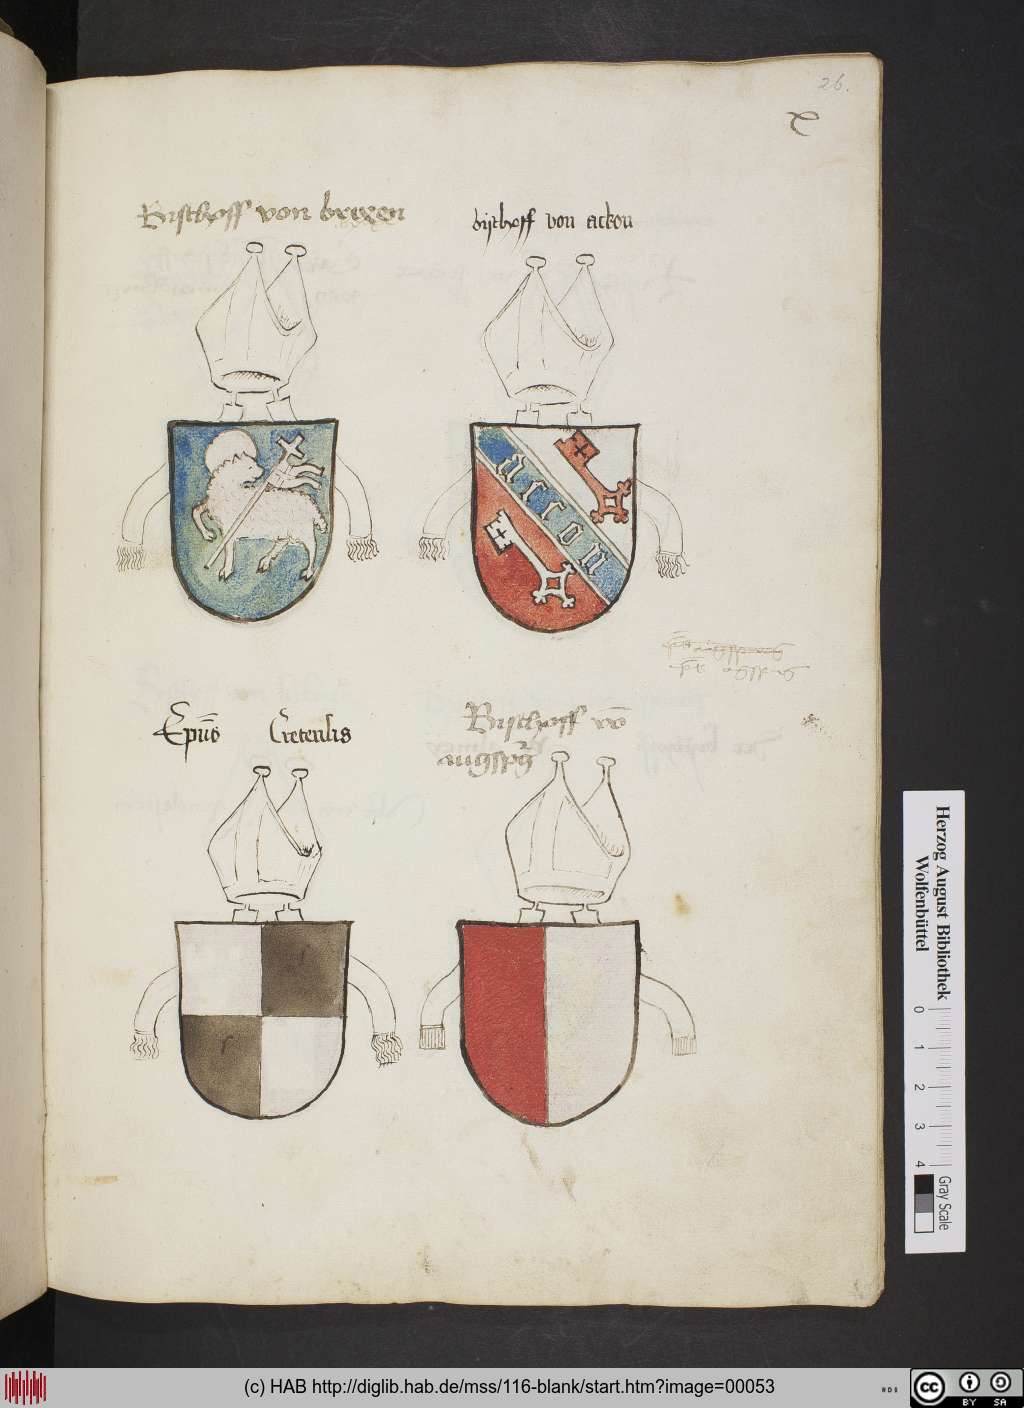 26.
Bisthoff von brixen
bisthoff von ackon
accon
Ep̅us Cretensis
Bisthoff vō
augspurg
Herzog August Bibliothek
Wolfenbüttel
0 1 2 3 4
Gray Scale
(c) HAB http://diglib.hab.de/mss/116-blank/start.htm?image=00053
cc BY SA